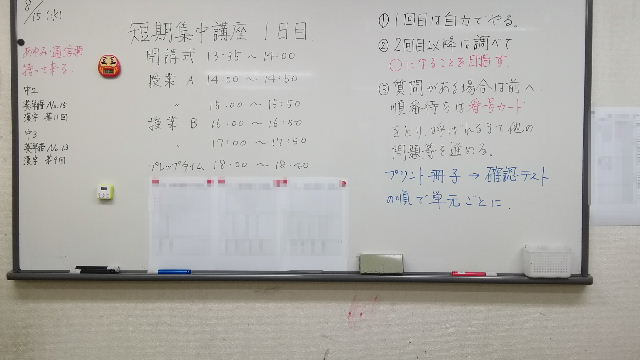 8/15(火)
持って来る。
中2
英単語 No.15
漢字 第11回
中3
英単語 No.13
漢字 第9回
短期集中講座 1日目
開講式 13:35～14:00
授業A 14:00～14:50
〃 15:00～15:50
授業B 16:00～16:50
〃 17:00～17:50
プレップタイム 18:00～18:50
①1回目は自力でやる。
②2回目以降に調べて
○にすることを目指す。
③質問がある場合は前へ。
順番待ちは番号カード
をとり、呼ばれるまで他の
問題等を進める。
プリント冊子→確認テスト
の順で単元ごとに。